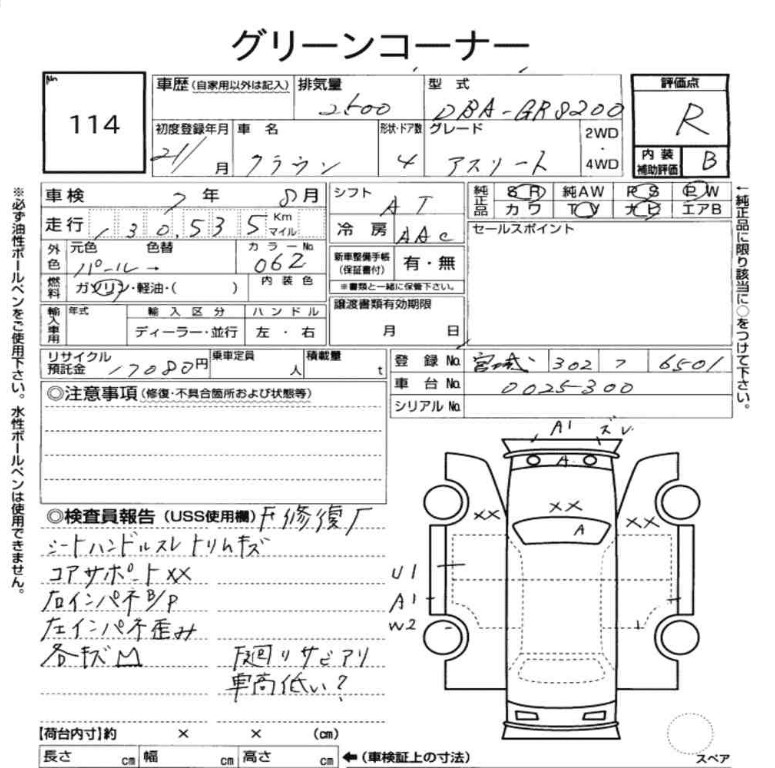 グリーンコーナー
No 114
車歴(自家用以外は記入) 排気量 2500 型式 DBA-GRS200
初度登録年月 21/ 月 車名 クラウン 形状・ドア数 4 グレード アスリート 2WD・4WD
評価点 R
内装補助評価 B
車検 7年 8月
走行 130,535 Km マイル
外色 元色 パール 色替 → カラーNo. 062
燃料 ガソリン・軽油・( ) 内装色
輸入車用 年式 輸入区分 ディーラー・並行 ハンドル 左・右
リサイクル預託金 17080円 乗車定員 人 積載量 t
シフト AT
冷房 AAC
新車整備手帳(保証書付) 有・無
※書類と一緒に保管下さい。
譲渡書類有効期限
月 日
純正品 SR 純AW PS PW
カワ TV ナビ エアB
セールスポイント
登録No. 宮城 302 7 6501
車台No. 0025300
シリアルNo.
◎注意事項(修復・不具合箇所および状態等)
◎検査員報告(USS使用欄) F修復有
シートハンドルスレ トリムキズ
コアサポートXX
右インパネB/P
左インパネ歪み
各キズ凹
下廻りサビアリ
車高低い?
A1 ズレ
A
XX XX XX
A
U1
A1
W2
【荷台内寸】約 × × (cm)
長さ cm 幅 cm 高さ cm ←(車検証上の寸法)
スペア
※必ず油性ボールペンをご使用下さい。水性ボールペンは使用できません。
←純正品に限り該当に○をつけて下さい。